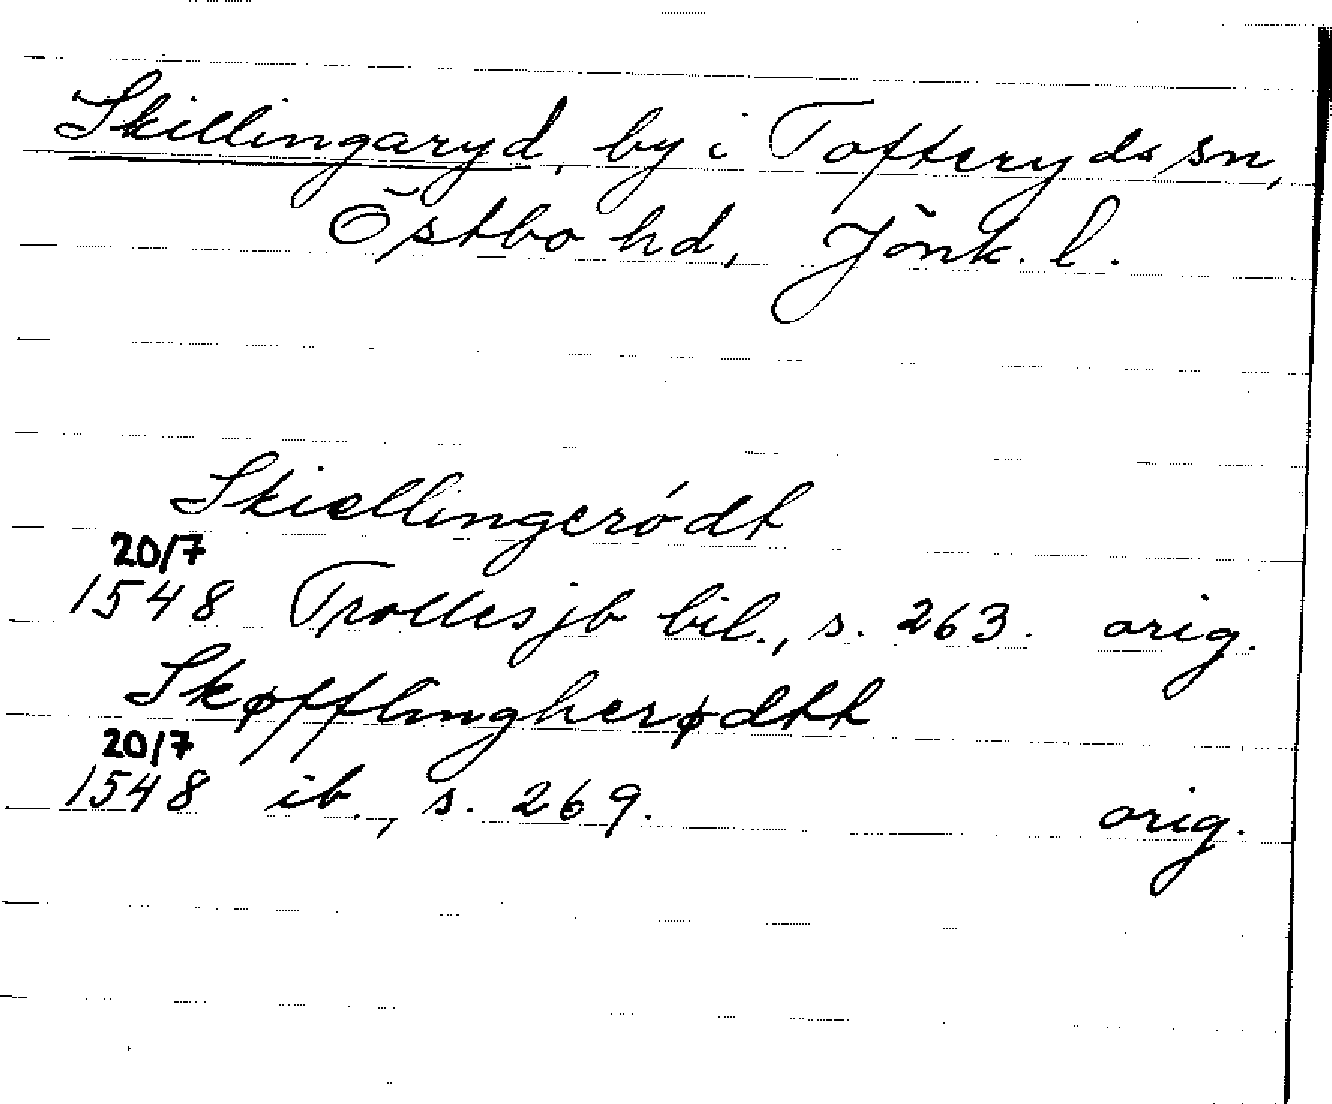 Skillingaryd, by i Tofteryds sn,
Östbo hd, Jönk. l.
Skiellingeródt
20/7
1548 Trolles jb bil., s. 263. orig.
Skøfflingherødtt
20/7
1548 ib., s. 269. orig.